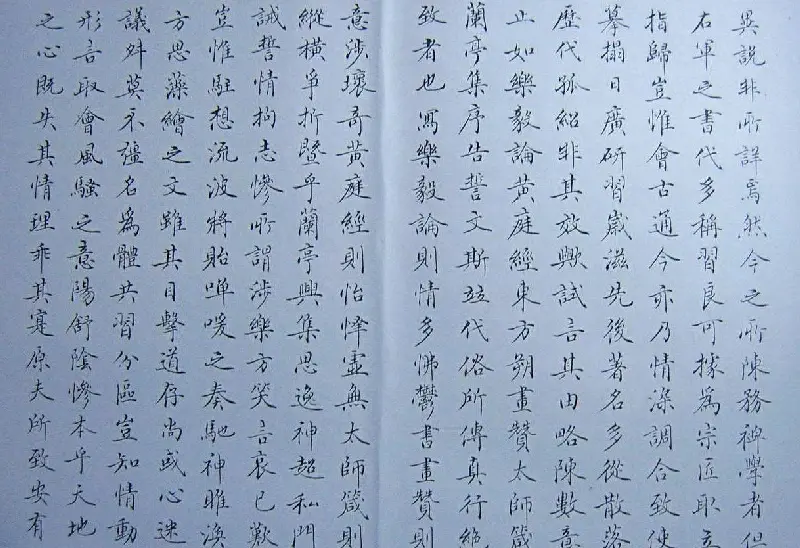 異說非所詳焉然今之所陳務裨學者但
右軍之書代多稱習良可據爲宗匠取立
指歸豈惟會古通今亦乃情深調合致使
摹搨日廣研習歲滋先後著名多從散落
歷代孤紹非其效歟試言其由略陳數意
止如樂毅論黃庭經東方朔畫贊太師箴
蘭亭集序告誓文斯竝代俗所傳真行絕
致者也寫樂毅論則情多怫鬱書畫贊則
意涉瓌奇黃庭經則怡懌虛無太師箴則
縱橫爭折暨乎蘭亭興集思逸神超私門
誡誓情拘志慘所謂涉樂方笑言哀已歎
豈惟駐想流波將貽嘽喛之奏馳神睢渙
方思藻繪之文雖其目擊道存尚或心迷
議舛莫不彊名爲體共習分區豈知情動
形言取會風騷之意陽舒陰慘本乎天地
之心既失其情理乖其寔原夫所致安有